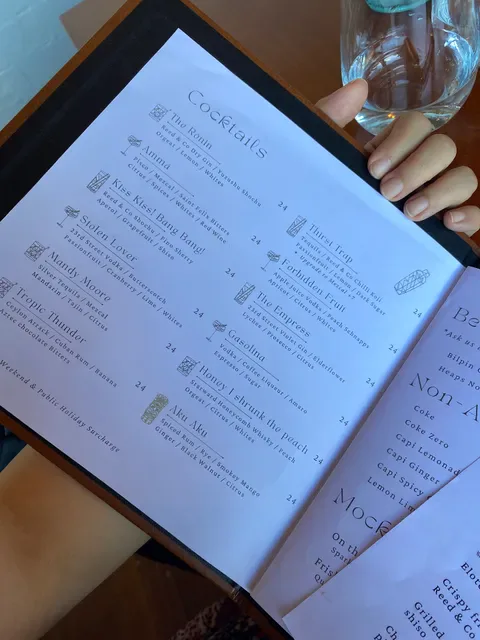 Cocktails
The Ronin
Reed & Co Dry Gin / Yuzushu Shochu
Orgeat / Lemon / Whites
24
Amma
Pisco / Mezcal / Saint Felix Bitters
Citrus / Spices / Whites / Red Wine
24
Kiss Kiss! Bang Bang!
Reed & Co Shochu / Fino Sherry
Aperol / Grapefruit / Shiso
24
Stolen Lover
23rd Street Vodka / Butterscotch
Passionfruit / Cranberry / Lime / Whites
24
Mandy Moore
Silver Tequila / Mezcal
Mandarin / Yuzu / Citrus
24
Tropic Thunder
Ceylon Arrack / Cuban Rum / Banana
Aztec chocolate Bitters
24
Weekend & Public Holiday Surcharge
Thirst Trap
Tequila / Reed & Co Chilli Koji
Passionfruit / Lemon / Hack Sugar
24
Forbidden Fruit
Apple Juice Vodka / Peach Schnapps
Apricot / Citrus / Whites
24
The Empress
23rd Street Violet Gin / Elderflower
Lychee / Prosecco / Citrus
24
Gasolina
Vodka / Coffee Liqueur / Amaro
Espresso / Sugar
24
Honey I shrunk the peach
Starward Honeycomb Whisky / Peach
Orgeat / Citrus / Whites
24
Aku Aku
Spiced Rum / Rye / Smokey Mango
Ginger / Black Walnut / Citrus
24
Be
"Ask us
Bilpin
Heaps No
Non-A
Coke
Coke Zero
Capi Lemonad
Capi Ginger
Capi Spicy
Lemon Lim
Mock
On th
Spar
Fris
Qu
Blo
Crispy fr
Reed & Co
Grilled
shis